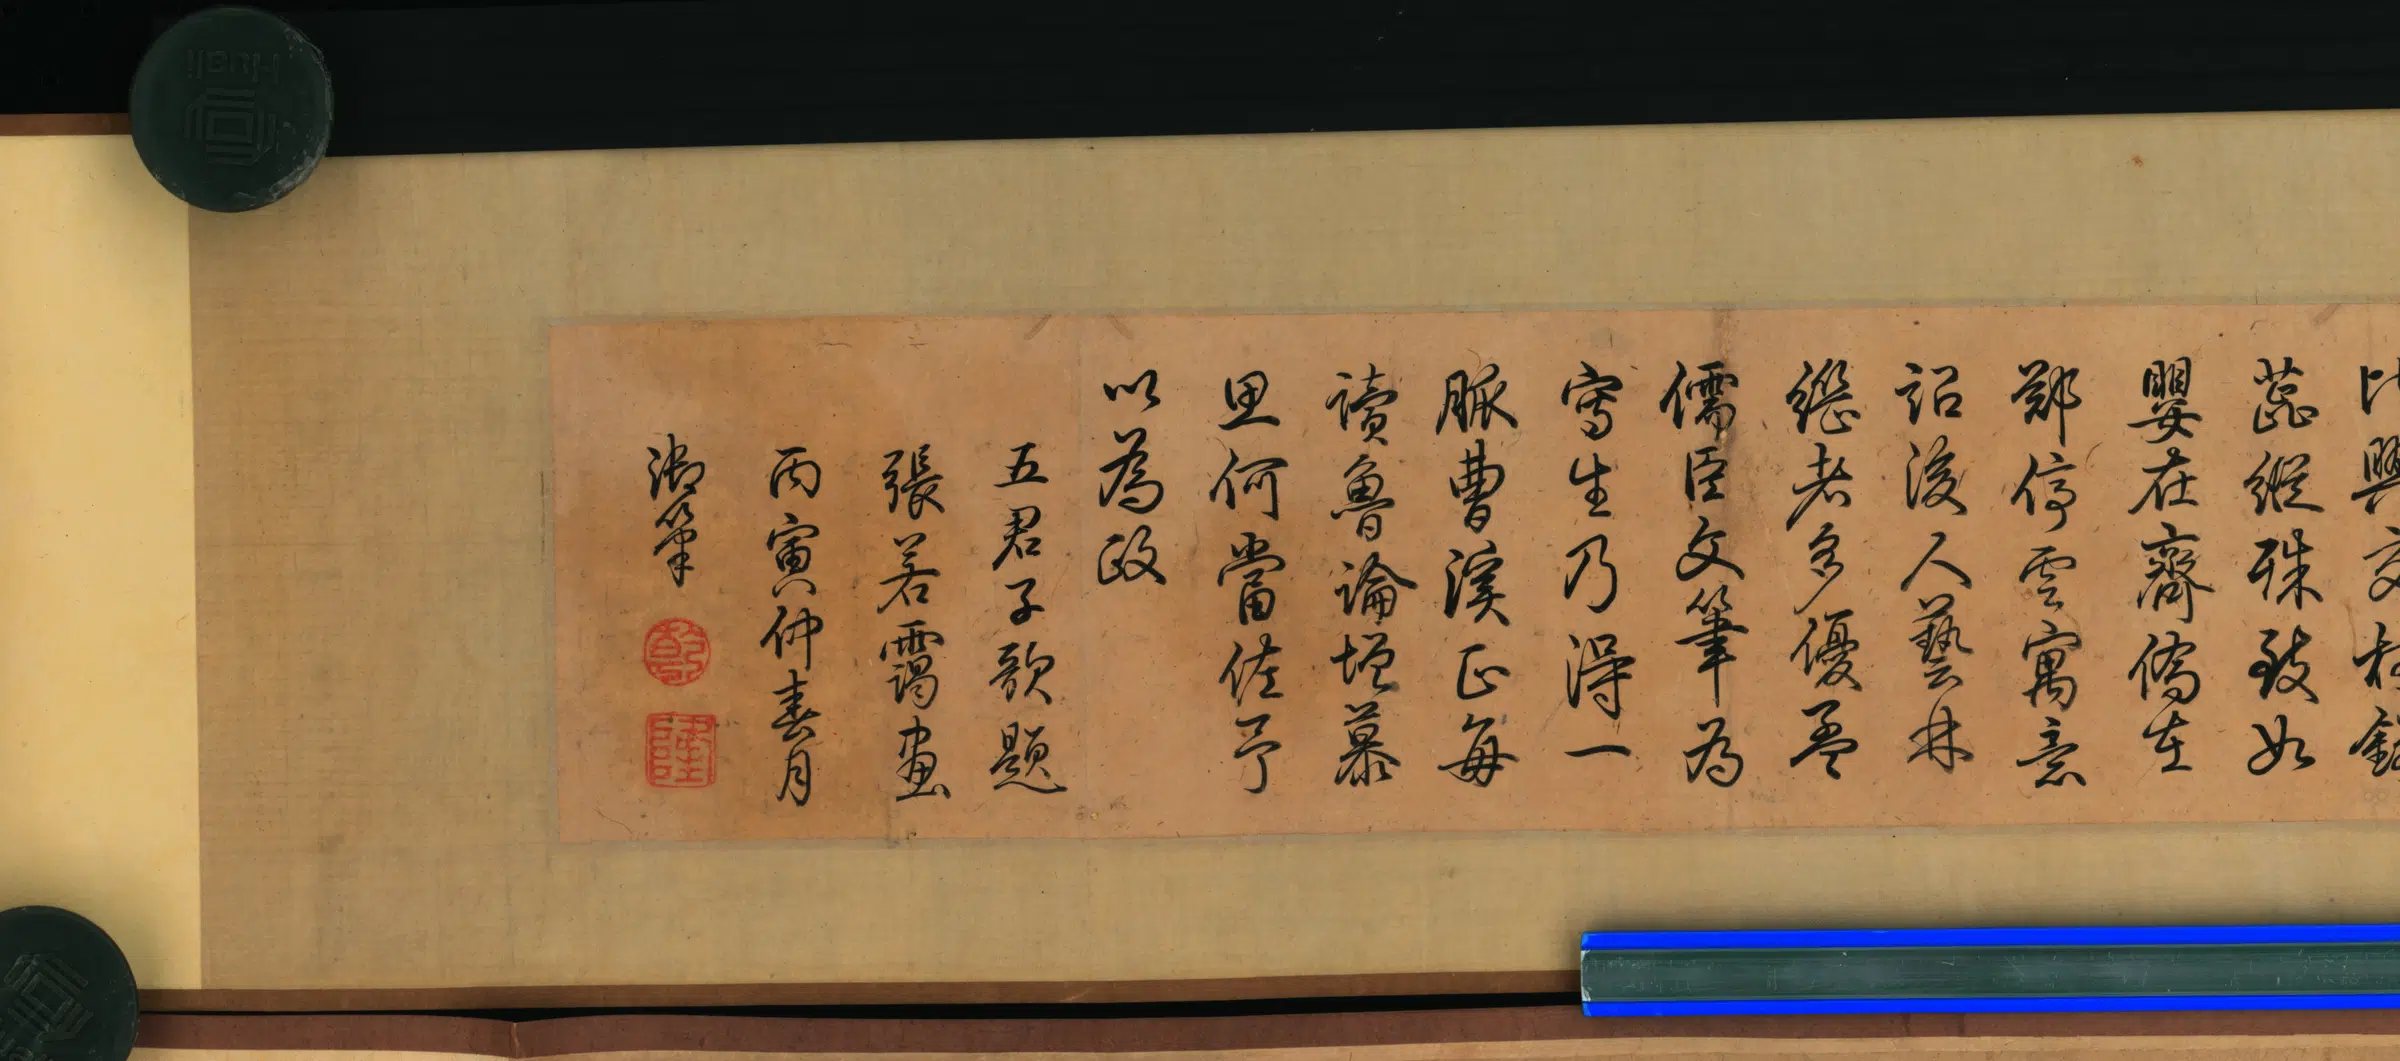 比興交枝
蕊縱殊致如
嬰在齊僑在
鄭停雲寓意
詔後人藝林
繼者多優孟
儒臣文筆為
寫生乃得一
脈曹溪正每
讀魯論增慕
思何當佐予
以為政
五君子歌題
張若靄畫
丙寅仲春月
御筆
乾
隆
Huali